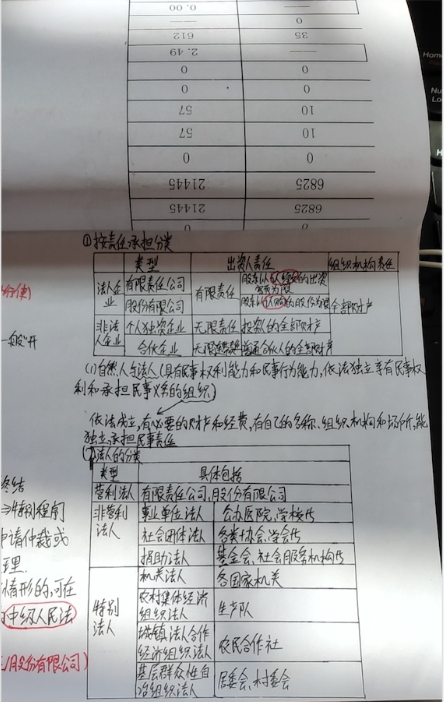 0.00 —
612 35
2.49 —
0 0
0 0
57 10
57 10
0 0
21445 6825
21445 6825
①按责任承担分类
类型 出资人责任 组织机构责任
法人企业 有限责任公司 有限责任 股东以认缴的出资额为限 全部财产
股份有限公司 股东以认购的股份为限
非法人企业 个人独资企业 无限责任 投资人的全部财产
合伙企业 无限连带 普通合伙人的全部财产
(1)自然人与法人(具有民事权利能力和民事行为能力,依法独立享有民事权
利和承担民事义务的组织。)
依法成立,有必要的财产和经费,有自己的名称、组织机构和场所,能
独立承担民事责任
法人的分类
类型 具体包括
营利法人 有限责任公司,股份有限公司
非营利法人 事业单位法人 公办医院,学校代
社会团体法人 各类协会,学会代
捐助法人 基金会,社会服务机构代
特别法人 机关法人 各国家机关
农村集体经济组织法人 生产队
城镇法人合作经济组织法人 农民合作社
基层群众性自治组织法人 居委会,村委会
终结
特别程序
申请仲裁或
理
情形的,可在
中级人民法
股份有限公司)